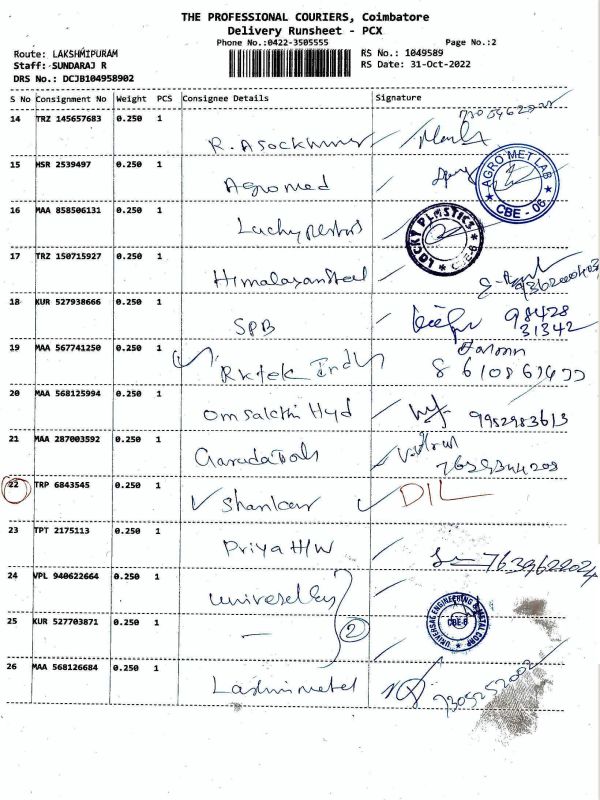 THE PROFESSIONAL COURIERS, Coimbatore
Delivery Runsheet - PCX
Phone No.:0422-3505555 Page No.:2
Route: LAKSHMIPURAM RS No.: 1049589
Staff: SUNDARAJ R RS Date: 31-Oct-2022
DRS No.: DCJB104958902
S No Consignment No Weight PCS Consignee Details Signature
14 TRZ 145657683 0.250 1
R. Asockkumar
15 HSR 2539497 0.250 1
Agromed
AGRO MET LAB
CBE - 06
16 MAA 858506131 0.250 1
LUCKY PLASTICS
CBE-6
17 TRZ 150715927 0.250 1
Himalayan Steel
18 KUR 527938666 0.250 1
SPB 98428
31342
19 MAA 567741250 0.250 1
Rktek Ind
20 MAA 568125994 0.250 1
Om Sakthi Hyd 9952983613
21 MAA 287003592 0.250 1
Garuda Tools
22 TRP 6843545 0.250 1
Shankar DIL
23 TPT 2175113 0.250 1
Priya H/W 7639622024
24 VPL 940622664 0.250 1
UNIVERSAL ENGINEERING & METAL CORP
CBE-6
25 KUR 527703871 0.250 1
2
26 MAA 568126684 0.250 1
Laxmi metal 9305252002